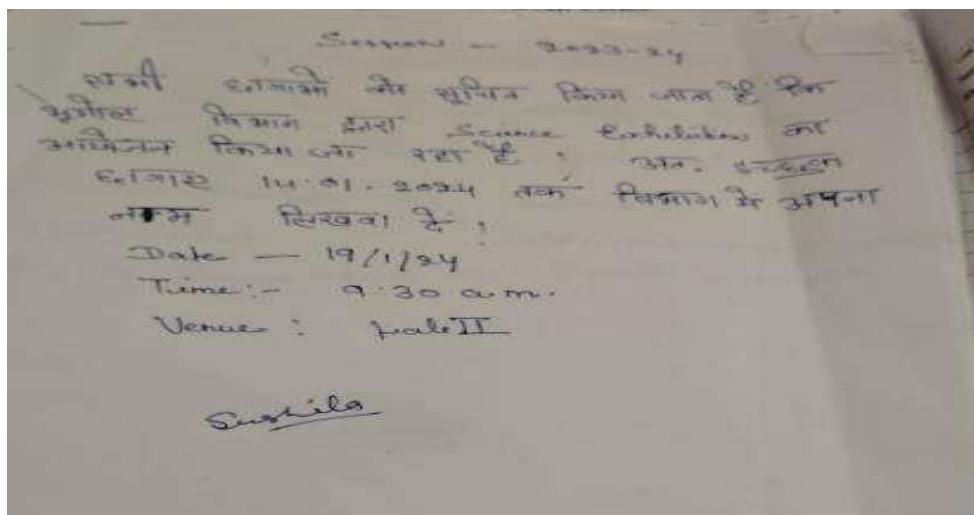 Session - 2023-24
सभी छात्राओं को सूचित किया जाता है कि
भूगोल विभाग द्वारा Science Exhibition का
आयोजन किया जा रहा है । अतः इच्छुक
छात्राएं 14.01.2024 तक विभाग में अपना
नाम लिखवा दें ।
Date — 19/1/24
Time:- 9.30 a.m.
Venue : Lab II
Sushila